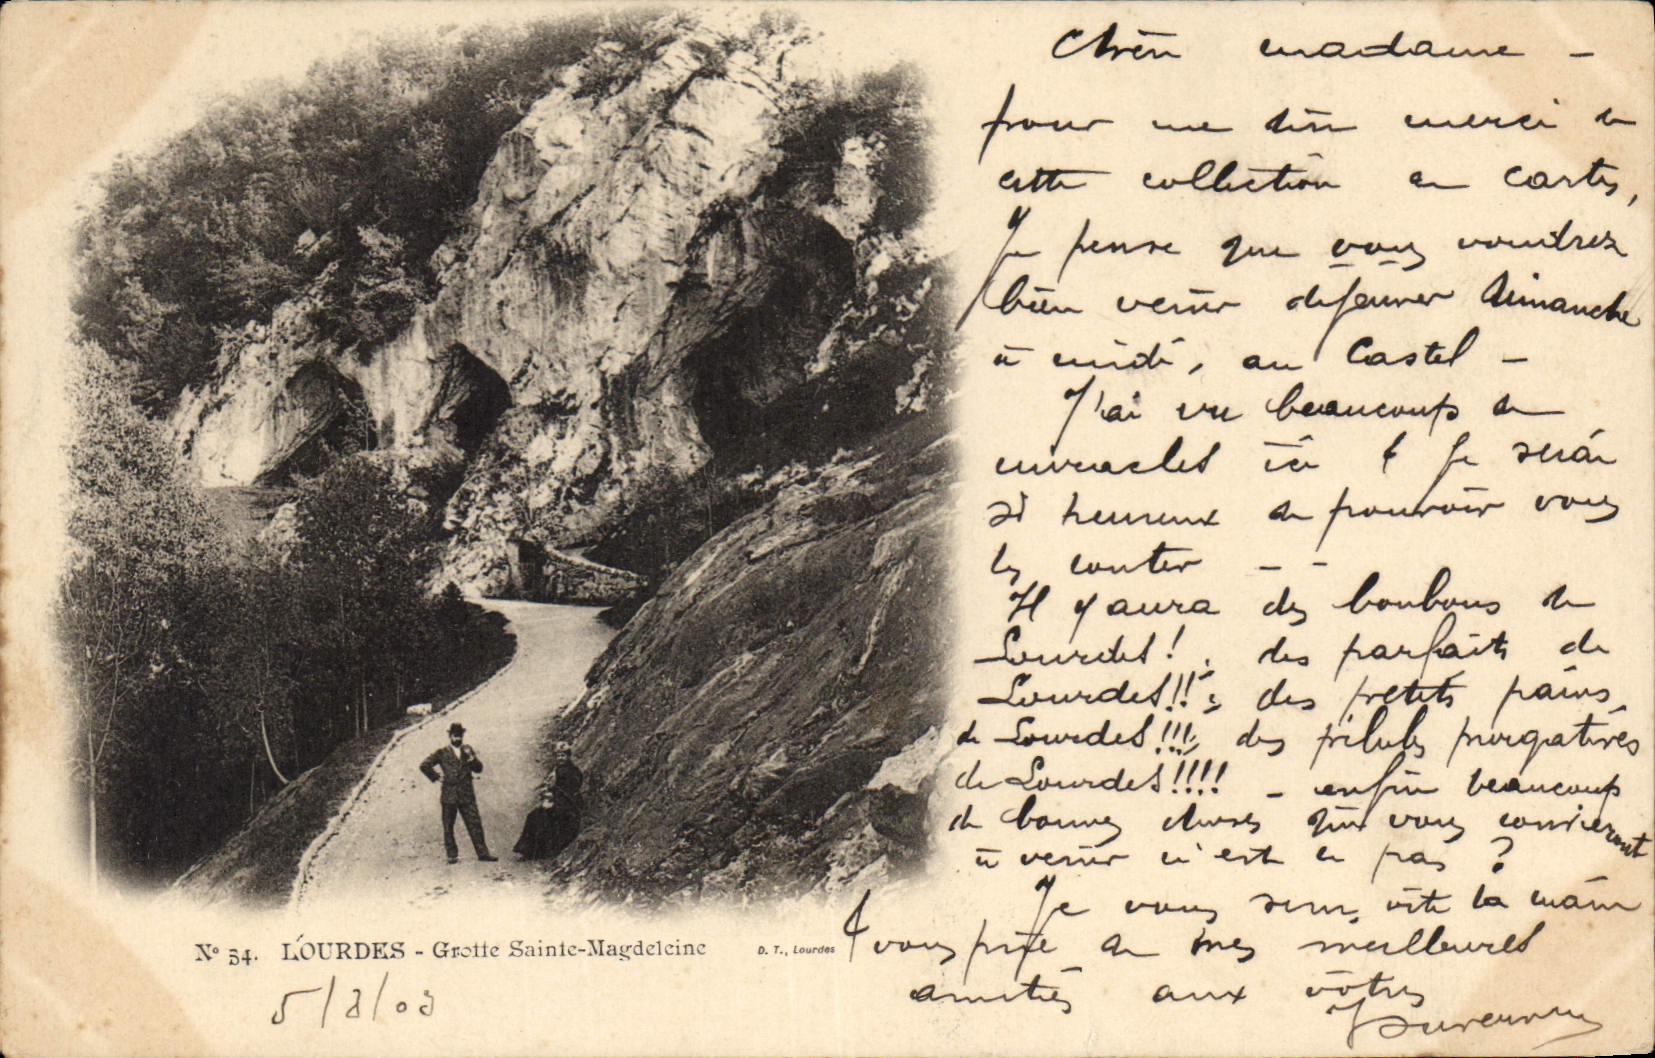 Chère madame -
pour une dire merci de
cette collection de cartes,
Je pense que vous voudrez
bien venir déjeuner dimanche
à midi, au Castel -
J'ai vu beaucoup de
miracles ici & je serai
si heureux de pouvoir vous
les conter - -
Il y aura des bonbons de
Lourdes! ; des parfaits de
Lourdes!! ; des petits pains
de Lourdes!!!; des pilules purgatives
de Lourdes!!!! - enfin beaucoup
de bonnes choses qui vous convieront
à venir n'est ce pas ?
Je vous serre vite la main
& vous prie de mes meilleures
amitiés aux vôtres
N° 54. LOURDES - Grotte Sainte-Magdeleine D. T., Lourdes
5/8/03